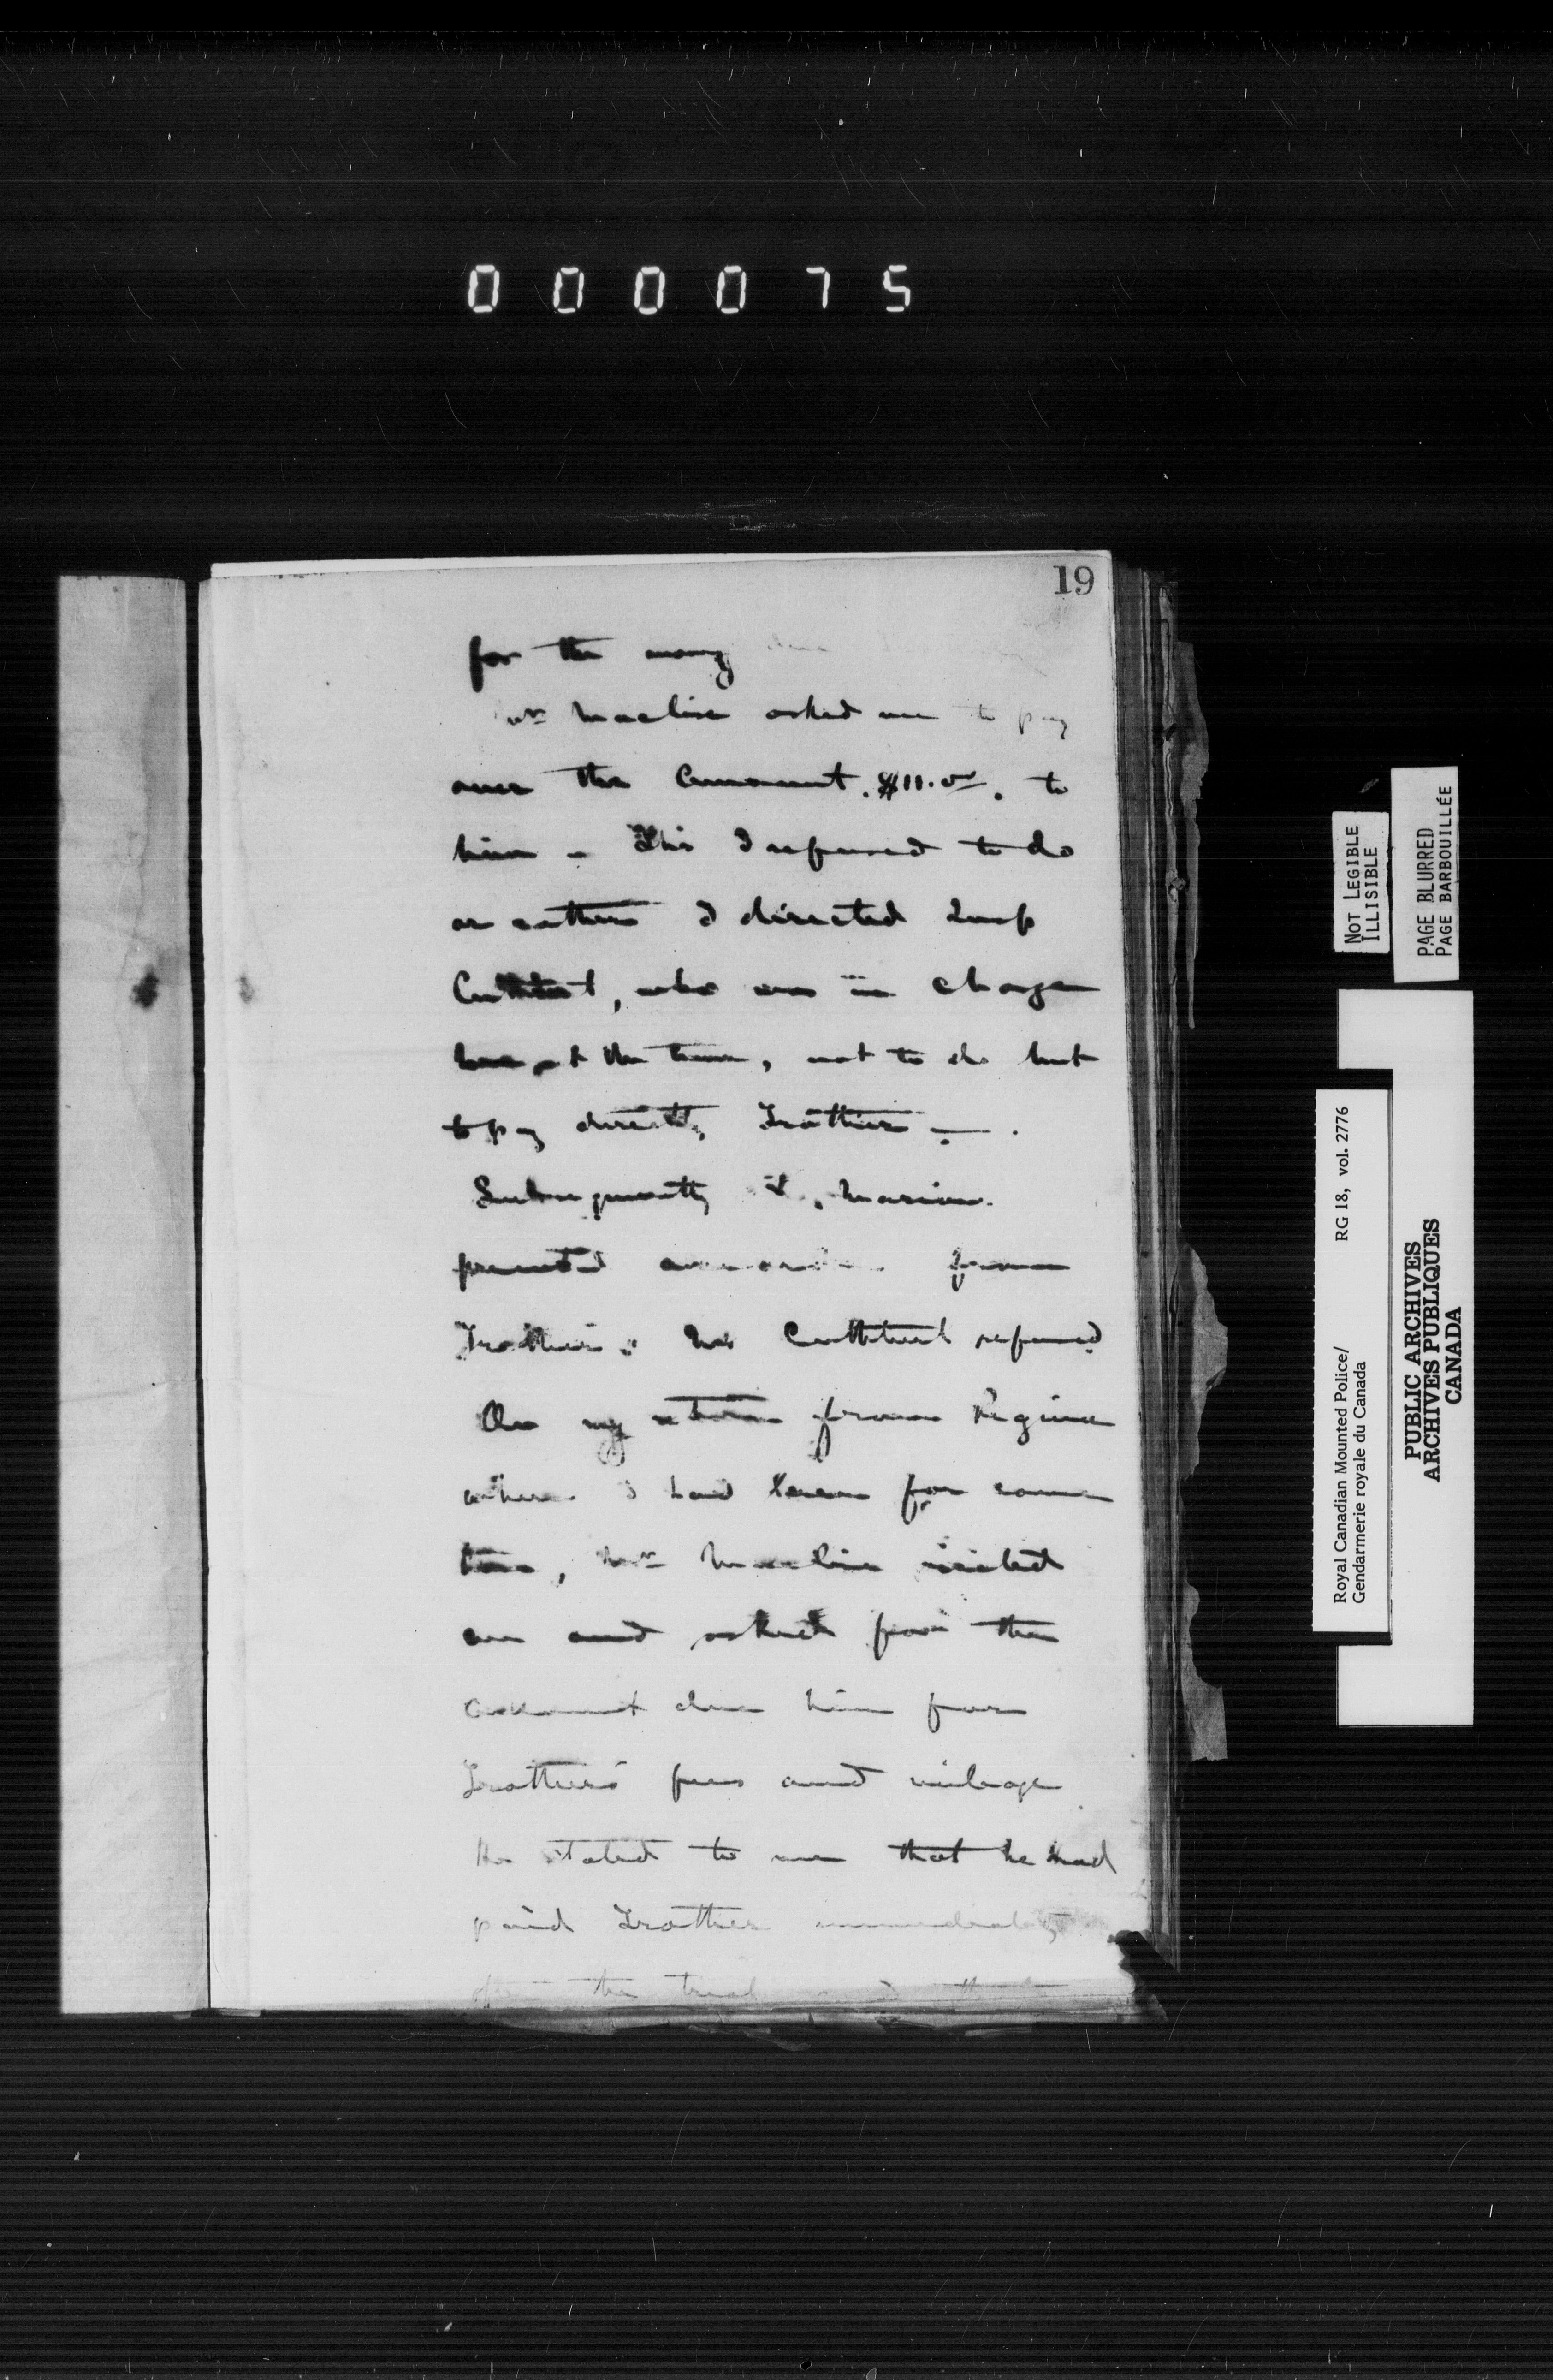 000075
19
for the money due
Mr Maclise asked me to pay
over the amount. $11.00. to
him - This I refused to do
or rather I directed Insp
Cuthbert, who was in charge
here at the time, not to do but
to pay directly Trottier - .
Subsequently Maclise
presented an order from
Trottier. Mr Cuthbert refused
On my return from Regina
where I had been for some
time, Mr Maclise visited
me and asked for the
amount due him for
Trottier's fees and mileage
He stated to me that he had
paid Trottier immediately
after the trial and that
NOT LEGIBLE
ILLISIBLE
PAGE BLURRED
PAGE BARBOUILLÉE
Royal Canadian Mounted Police/ RG 18, vol. 2776
Gendarmerie royale du Canada
PUBLIC ARCHIVES
ARCHIVES PUBLIQUES
CANADA